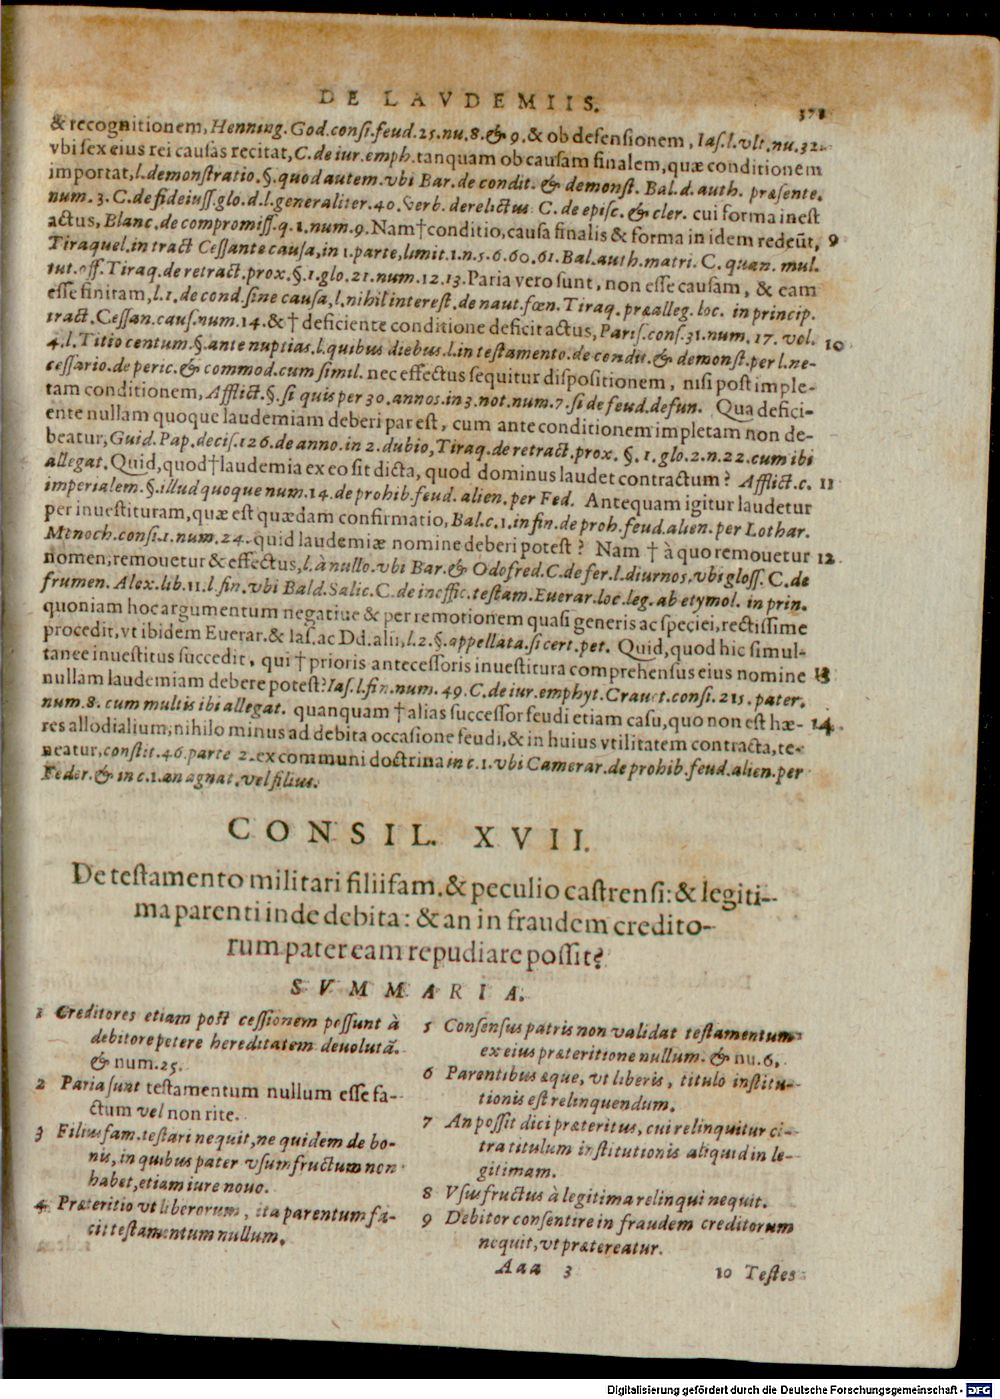 DE LAVDEMIIS. 371
& recognitionem, Henning. God. consi. feud. 25. nu. 8. & 9. & ob defensionem, Ias. l. vlt. nu. 32.
vbi sex eius rei causas recitat, C. de iur. emph. tanquam ob causam finalem, quæ conditionem
importat, l. demonstratio. §. quod autem. vbi Bar. de condit. & demonst. Bal. d. auth. præsente.
num. 3. C. de fideiuss. glo. d. l. generaliter. 40. verb. derelictus C. de episc. & cler. cui forma inest
actus, Blanc. de compromiss. q. 1. num. 9. Nam † conditio, causa finalis & forma in idem redeūt, 9
Tiraquel. in tract Cessante causa, in 1. parte, limit. 1. n. 5. 6. 60. 61. Bal. auth. matri. C. quan. mul.
tut. off. Tiraq. de retract. prox. §. 1. glo. 21. num. 12. 13. Paria vero sunt, non esse causam, & eam
esse finitam, l. 1. de cond. sine causa, l. nihil interest. de naut. fœn. Tiraq. præalleg. loc. in princip.
tract. Cessan. caus. num. 14. & † deficiente conditione deficit actus, Paris. cons. 31. num. 17. vol. 10
4. l. Titio centum. §. ante nuptias. l. quibus diebus. l. in testamento. de condit. & demonst. per l. ne-
cessario. de peric. & commod. cum simil. nec effectus sequitur dispositionem, nisi post imple-
tam conditionem, Afflict. §. si quis per 30. annos. in 3. not. num. 7. si de feud. defun. Qua defici-
ente nullam quoque laudemiam deberi par est, cum ante conditionem impletam non de-
beatur, Guid. Pap. decis. 126. de anno. in 2. dubio, Tiraq. de retract. prox. §. 1. glo. 2. n. 22. cum ibi
allegat. Quid, quod † laudemia ex eo sit dicta, quod dominus laudet contractum? Afflict. c. 11
imperialem. §. illud quoque num. 14. de prohib. feud. alien. per Fed. Antequam igitur laudetur
per inuestituram, quæ est quædam confirmatio, Bal. c. 1. in fin. de proh. feud. alien. per Lothar.
Menoch. consi. 1. num. 24. quid laudemiæ nomine deberi potest? Nam † à quo remouetur 12
nomen, remouetur & effectus, l. à nullo. vbi Bar. & Odofred. C. de fer. l. diurnos, vbi gloss. C. de
frumen. Alex. lib. 11. l. fin. vbi Bald. Salic. C. de ineffic. testam. Euerar. loc. leg. ab etymol. in prin.
quoniam hoc argumentum negatiue & per remotionem quasi generis ac speciei, rectissime
procedit, vt ibidem Euerar. & Ias. ac Dd. alii, l. 2. §. appellata. si cert. pet. Quid, quod hic simul-
tanee inuestitus succedit, qui † prioris antecessoris inuestitura comprehensus eius nomine 13
nullam laudemiam debere potest? Ias. l. fin. num. 49. C. de iur. emphyt. Crauet. consi. 215. pater.
num. 8. cum multis ibi allegat. quanquam † alias successor feudi etiam casu, quo non est hæ- 14
res allodialium, nihilo minus ad debita occasione feudi, & in huius vtilitatem contracta, te-
neatur, constit. 46. parte 2. ex communi doctrina in c. 1. vbi Camerar. de prohib. feud. alien. per
Feder. & in c. 1. an agnat. vel filius.
CONSIL. XVII.
De testamento militari filiifam. & peculio castrensi: & legiti-
ma parenti inde debita: & an in fraudem credito-
rum pater eam repudiare possit?
SVMMARIA.
1 Creditores etiam post cessionem possunt à
debitore petere hereditatem deuolutā.
& num. 25.
2 Paria sunt testamentum nullum esse fa-
ctum vel non rite.
3 Filiusfam. testari nequit, ne quidem de bo-
nis, in quibus pater vsumfructum non
habet, etiam iure nouo.
4 Præteritio vt liberorum, ita parentum fa-
cit testamentum nullum.
5 Consensus patris non validat testamentum
ex eius præteritione nullum. & nu. 6.
6 Parentibus æque, vt liberis, titulo institu-
tionis est relinquendum.
7 An possit dici præteritus, cui relinquitur ci-
tra titulum institutionis aliquid in le-
gitimam.
8 Vsusfructus à legitima relinqui nequit.
9 Debitor consentire in fraudem creditorum
nequit, vt prætereatur.
Aaa 3 10 Testes
Digitalisierung gefördert durch die Deutsche Forschungsgemeinschaft - DFG